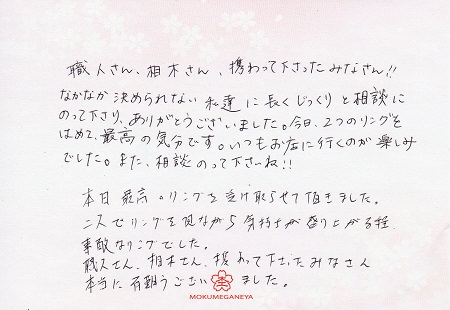 職人さん、相木さん、携わって下さったみなさん!!
なかなか決められない私達に長くじっくりと相談に
のって下さり、ありがとうございました。今日、2つのリングを
はめて、最高の気分です。いつもお店に行くのが楽しみ
でした。また、相談のって下さいね!!
本日最高のリングを受け取らせて頂きました。
二人でリングを見ながら気持ちが盛り上がる程、
素敵なリングでした。
職人さん、相木さん、携わって下さったみなさん
本当に有難うございました。
MOKUMEGANEYA